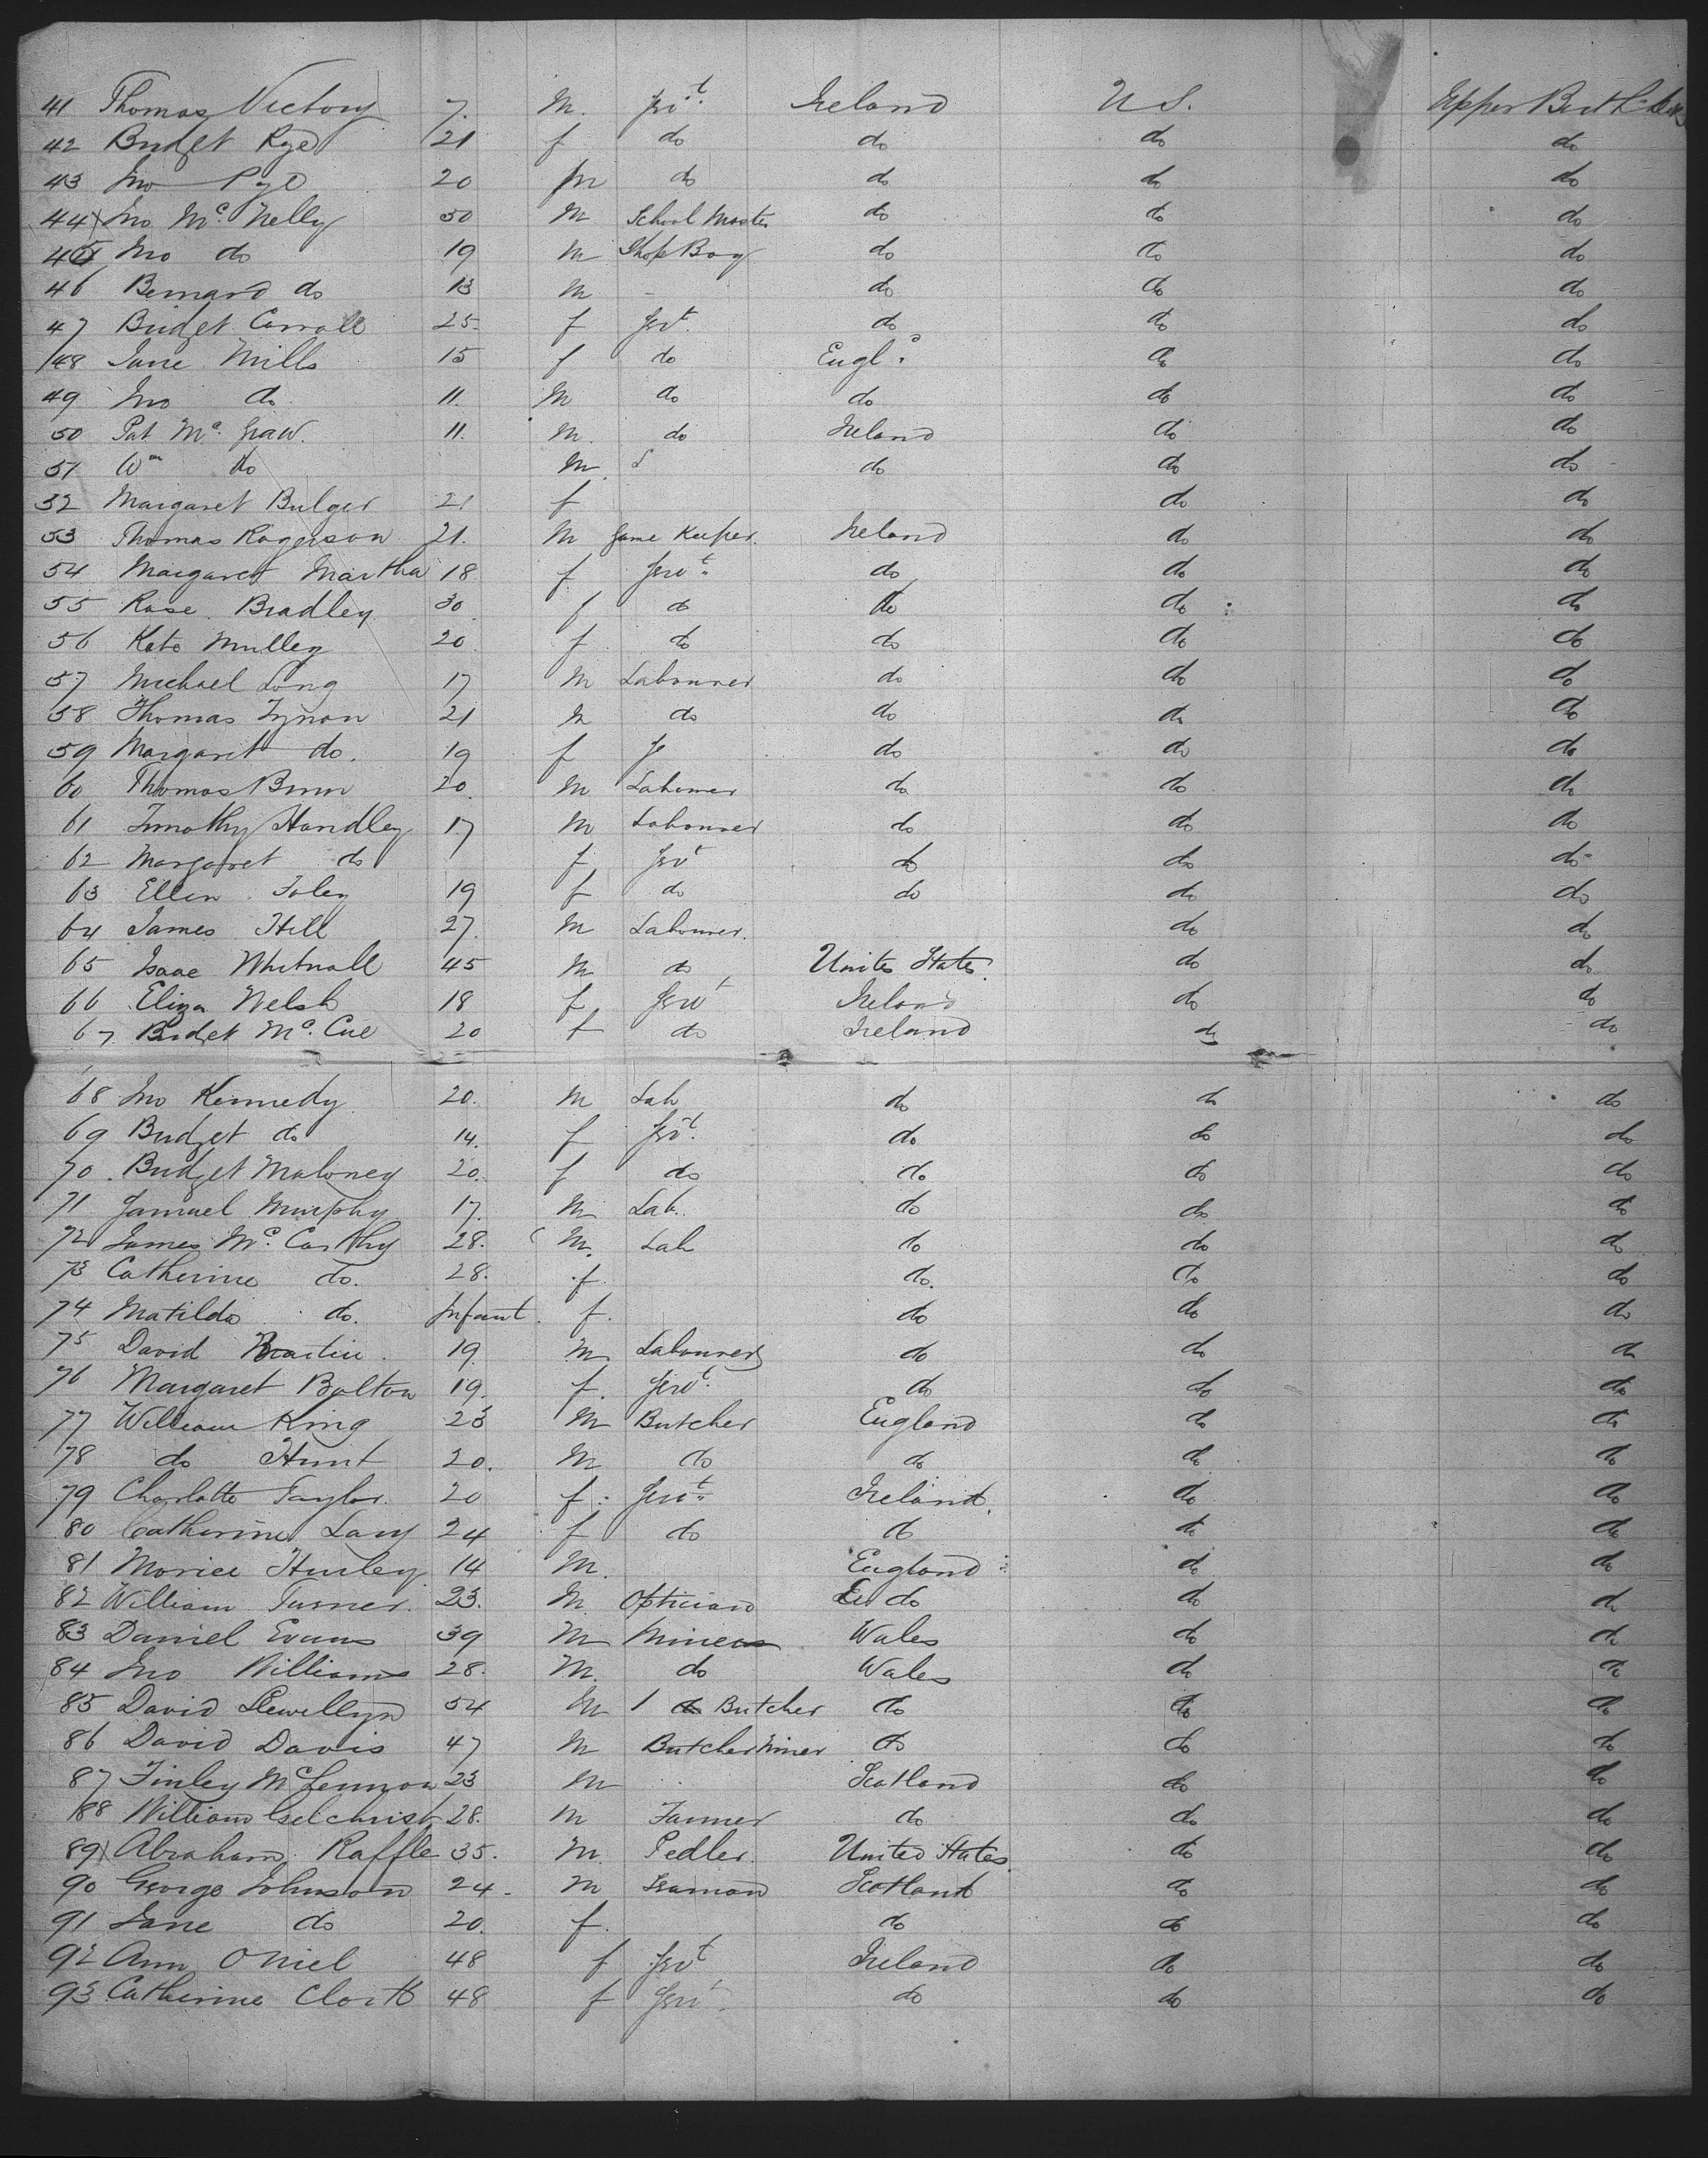 41 Thomas Victory 7. M. Servt. Ireland U S. Upper Birth deck
42 Bridget Rye 21 f do do do do
43 Jno Pye 20 M do do do do
44 Jno Mc Nelly 50 M School Master do do do
45 Jno do 19 M Shop Boy do do do
46 Bernard do 13 M - do do do
47 Bridget Carroll 25. f Servt. do do do
48 Jane Mills 15 f do Engld. do do
49 Jno do 11. M do do do do
50 Pat Mc. Graw. 11. M. do Ireland do do
51 Wm do M. do do do
52 Margaret Bulger 21 f do do
53 Thomas Rogerson 21. M Game Keeper. Ireland do do
54 Margaret Martha 18 f Servt. do do do
55 Rose Bradley 30 f do do do do
56 Kate Mulley 20 f do do do do
57 Michael Long 17 M Labourer do do do
58 Thomas Tynon 21 M do do do do
59 Margaret do. 19 f do do do
60 Thomas Binn 20 M Labourer do do do
61 Timothy Handley 17 M Labourer do do do
62 Margaret do f Servt do do do
63 Ellen Foley 19 f do do do do
64 James Hill 27. M Labourer. do do
65 Isaac Whitnall 45 M do United States. do do
66 Eliza Welsh 18 f Servt Ireland do do
67 Bridget Mc. Cue 20 f do Ireland do do
68 Jno Kennedy 20. M Lab do do do
69 Bridget do 14. f Servt. do do do
70 Bridget Maloney 20. f do do do do
71 Samuel Murphy 17. M Lab. do do do
72 James Mc. Carthy 28. M. Lab do do do
73 Catherine do. 28. f. do. do do
74 Matilda do. Infant. f. do do do
75 David Martin 19. M Labourer do do do
76 Margaret Bolton 19. f. Servt. do do do
77 William King 23 M Butcher England do do
78 do Hunt 20. M do do do do
79 Charlotte Taylor. 20 f. Servt. Ireland. do do
80 Catherine Lavy 24 f do do do do
81 Morice Hurley 14 M. England do do
82 William Turner. 23. M. Optician do do do
83 Daniel Evans 39 M Miner Wales do do
84 Jno Williams 28. M. do Wales do do
85 David Llewellyn 54 M Butcher do do do
86 David Davis 47 M Butcher Miner do do do
87 Finley Mc Lennon 23 M Scotland do do
88 William Gelchrist 28. M Farmer do do do
89 Abraham Raffle 35. M. Pedler. United States do do
90 George Johnson 24. M Seaman Scotland do do
91 Jane do 20. f. do do do
92 Ann ONiel 48 f Servt Ireland do do
93 Catherine 48 f Servt. do do do